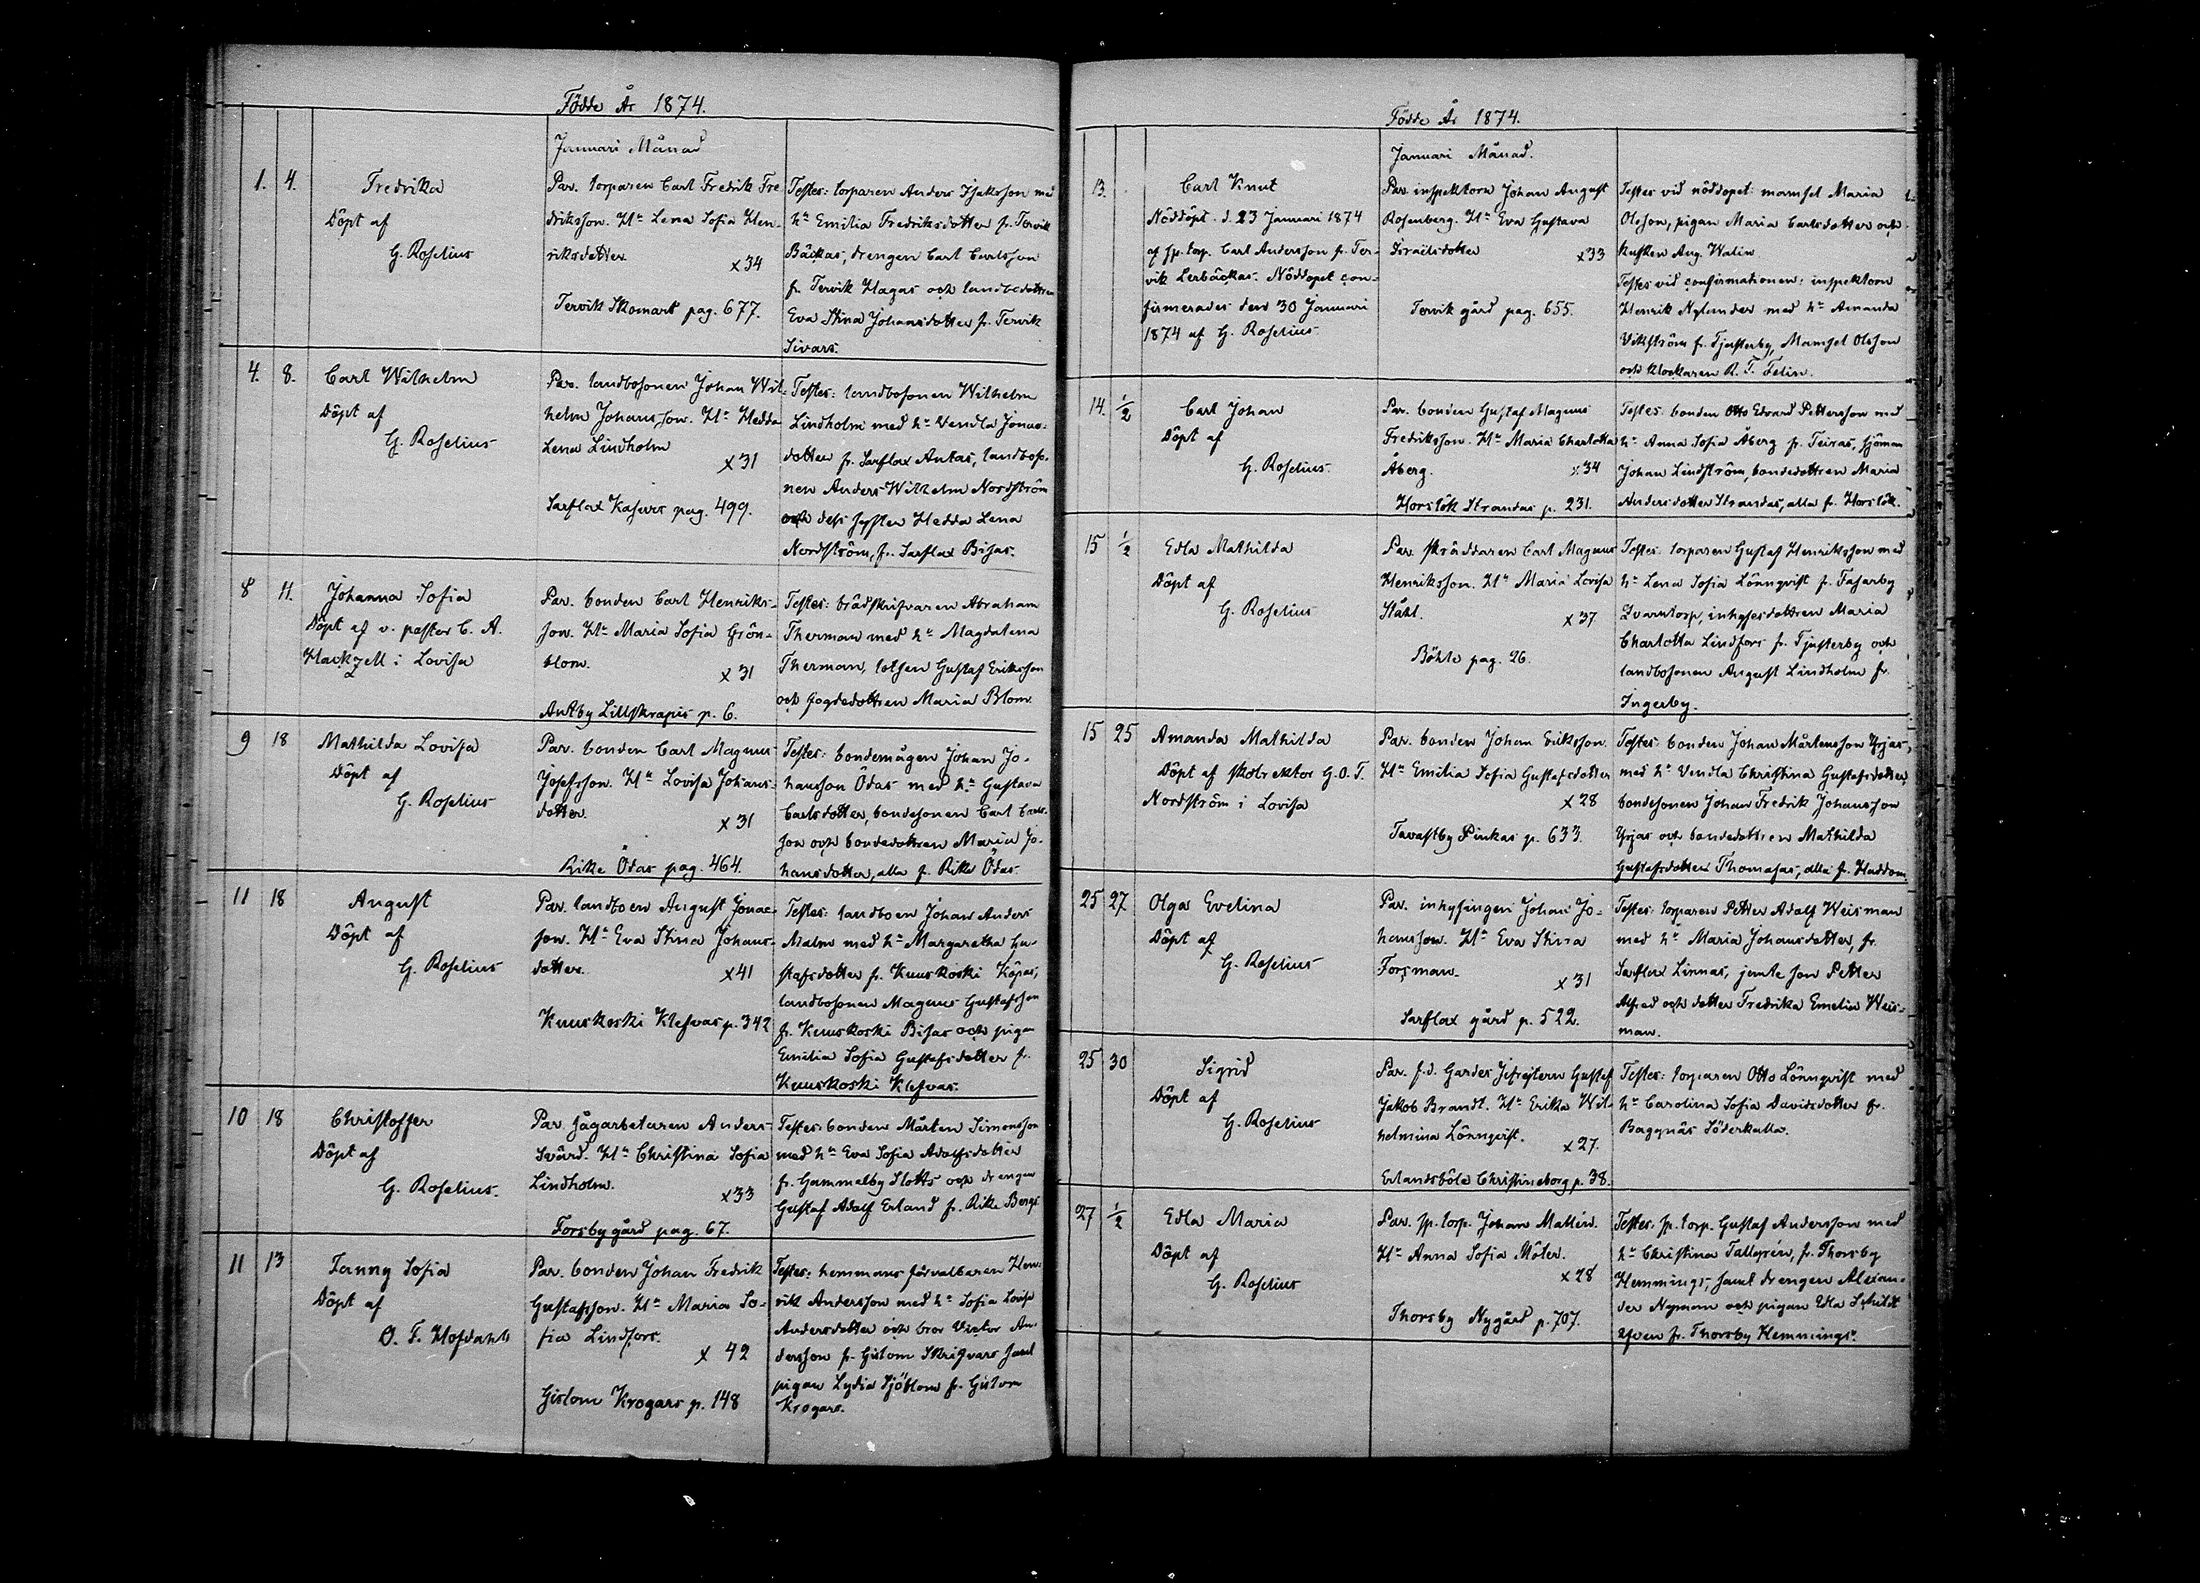 Födde År 1874.
Januari Månad
1. 4. Fredrika
Döpt af
G. Roselius
Par. torparen Carl Fredrik Fre
driksson. H:u Lena Sofia Hen-
riksdotter
x 34
Tervik Skomars pag. 677.
Testes: torparen Anders Isaksson med
h:u Emilia Fredriksdotter fr. Tervik
Bäckas, drengen Carl Carlsson
fr. Tervik Hagas och landbodottren
Eva Stina Johansdotter fr. Tervik
Sivars.
4. 8. Carl Wilhelm
Döpt af
G. Roselius
Par. landbosonen Johan Wil-
helm Johansson. H:u Hedda
Lena Lindholm
x 31
Sarflax pag. 499.
Testes: landbosonen Wilhelm
Lindholm med h:u Vendla Jonas-
dotter fr. Sarflax Antas, landboso-
nen Anders Wilhelm Nordström
och dess syster Hedda Lena
Nordström, fr. Sarflax Bisas.
8 11. Johanna Sofia
Döpt af v. pastor C. A.
Hackzell i Lovisa
Par. bonden Carl Henriks-
son. H:u Maria Sofia Grön-
blom.
x 31
Antby Lillskrapis p. 6.
Testes: Abraham
Therman med h:u Magdalena
Therman, lotsen Gustaf Eriksson
och fogdedottren Maria Blom
9 18 Mathilda Lovisa
Döpt af
G. Roselius
Par. bonden Carl Magnus
Josefsson. H:u Lovisa Johans-
dotter.
x 31
Rike Ödas pag. 464.
Testes: bondemågen Johan Jo-
hansson Ödas med h:u Gustava
Carlsdotter, bondesonen Carl Carls-
son och bondedottren Maria Jo-
hansdotter, alla fr. Rike Ödas.
11 18 August
Döpt af
G. Roselius
Par. landboen August Jonas-
son. H:u Eva Stina Johans-
dotter.
x 41
Kuuskoski Klefvas p. 342
Testes: landboen Johan Anders
Malm med h:u Margaretha Gu-
stafsdotter fr. Kuuskoski Köpas,
landbosonen Magnus Gustafsson
fr. Kuuskoski Bisas och pigan
Emilia Sofia Gustafsdotter fr.
Kuuskoski Klefvas.
10 18 Christoffer
Döpt af
G. Roselius.
Par. sågarbetaren Anders
Svärd. H:u Christina Sofia
Lindholm.
x 33
Forsby gård pag. 67.
Testes: bonden Mårten Simonsson
med h:u Eva Sofia Adolfsdotter
fr. Gammelby Slotts och drengen
Gustaf Adolf Erland fr. Rike Bergs
11 13 Fanny Sofia
Döpt af
O. F. Hofdahl
Par. bonden Johan Fredrik
Gustafsson. H:u Maria So-
fia Lindfors.
x 42
Gislom Krogars p. 148
Testes: hemmans förvaltaren Hen-
rik Andersson med h:u Sofia Lovisa
Andersdotter och bror Victor An-
dersson fr. Gislom Skrifvars samt
pigan Lydia Sjöblom fr. Gislom
Krogars.
Födde År 1874.
Januari Månad.
13. Carl Knut
Nöddöpt d. 23 Januari 1874
af sp. torp. Carl Andersson fr. Ter-
vik Lerbäckas. Nöddopet con-
firmerades den 30 Januari
1874 af G. Roselius
Par. inspektorn Johan August
Rosenberg. H:u Eva Gustava
Israelsdotter
x 33
Tervik gård pag. 655.
Testes vid nöddopet: mamsel Maria
Olsson, pigan Maria Carlsdotter och
kusken Aug. Walin
Testes vid confirmationen: inspektorn
Henrik Nylander med h:u Amanda
Vikström fr. Tjusterby, Mamsel Olsson
och klockaren R. T. Felin.
14. 1/2 Carl Johan
Döpt af
G. Roselius.
Par. bonden Gustaf Magnus
Fredriksson. H:u Maria Charlotta
Åberg.
x 34
Horslök Strandas p. 231.
Testes: bonden Otto Edvard Pettersson med
h:u Anna Sofia Åberg fr. Teiras, sjöman
Johan Lindström, bondedottren Maria
Andersdotter Strandas, alla fr. Horslök.
15 1/2 Edla Mathilda
Döpt af
G. Roselius
Par. skräddaren Carl Magnus
Henriksson. H:u Maria Lovisa
Ståhl.
x 37
Böhle pag. 26.
Testes: torparen Gustaf Henriksson med
h:u Lena Sofia Lönnqvist fr. Fasarby
Qvarntorp, inhysesdottren Maria
Charlotta Lindfors fr. Tjusterby och
landbosonen August Lindholm fr.
Ingerby.
15 25 Amanda Mathilda
Döpt af skolrektor G. O. T.
Nordström i Lovisa
Par. bonden Johan Eriksson.
H:u Emilia Sofia Gustafsdotter
x 28
Tavastby Pinkas p. 633.
Testes: bonden Johan Mårtensson Yrjas,
med h:u Vendla Christina Gustafsdotter,
bondesonen Johan Fredrik Johansson
Yrjas och bondedottren Mathilda
Gustafsdotter Thomasas, alla fr. Haddom.
25 27 Olga Evelina
Döpt af
G. Roselius
Par. inhysingen Johan Jo-
hansson. H:u Eva Stina
Forsman.
x 31
Sarflax gård p. 522.
Testes: torparen Petter Adolf Weisman
med h:u Maria Johansdotter, fr.
Sarflax Linnas, jemte son Petter
Alfred och dotter Fredrika Emelia Weis-
man.
25 30 Sigrid
Döpt af
G. Roselius
Par. f.d. Gardes Gustaf
Jakob Brandt. H:u Erika Wil-
helmina Lönnqvist.
x 27.
Erlandsböle Christineborg p. 38.
Testes: torparen Otto Lönnqvist med
h:u Carolina Sofia Davidsdotter fr.
Baggnäs Söderkulla.
27 1/2 Edla Maria
Döpt af
G. Roselius
Par. sp. torp. Johan Mattin.
H:u Anna Sofia Möler.
x 28
Thorsby Nygård p. 707.
Testes: sp. torp. Gustaf Andersson med
h:u Christina Tallgrén, fr. Thorsby
Hemmings, samt drengen Alexan-
der Nyman och pigan Edla Schildt
äfven fr. Thorsby Hemmings.